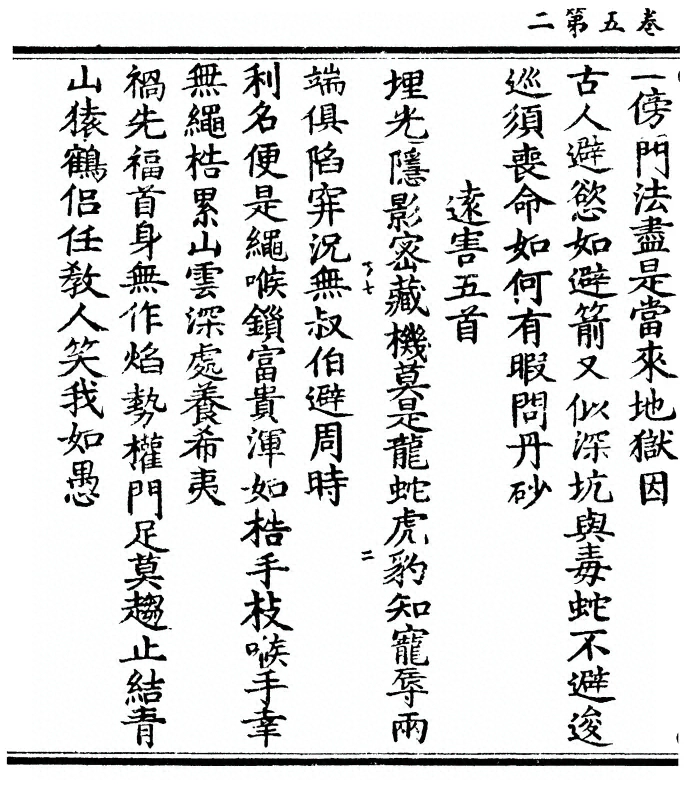 卷五第二
一傍門法盡是當來地獄因
古人避慾如避箭又似深坑與毒蛇不避逡
巡須喪命如何有暇問丹砂
遠害五首
埋光隱影密藏機莫是龍蛇虎豹知寵辱兩
端俱陷穽況無叔伯避周時
利名便是繩喉鎖富貴渾如梏手杖喉手幸
無繩梏累山雲深處養希夷
禍先福首身無作焰勢權門足莫趨止結青
山猿鶴侶任教人笑我如愚